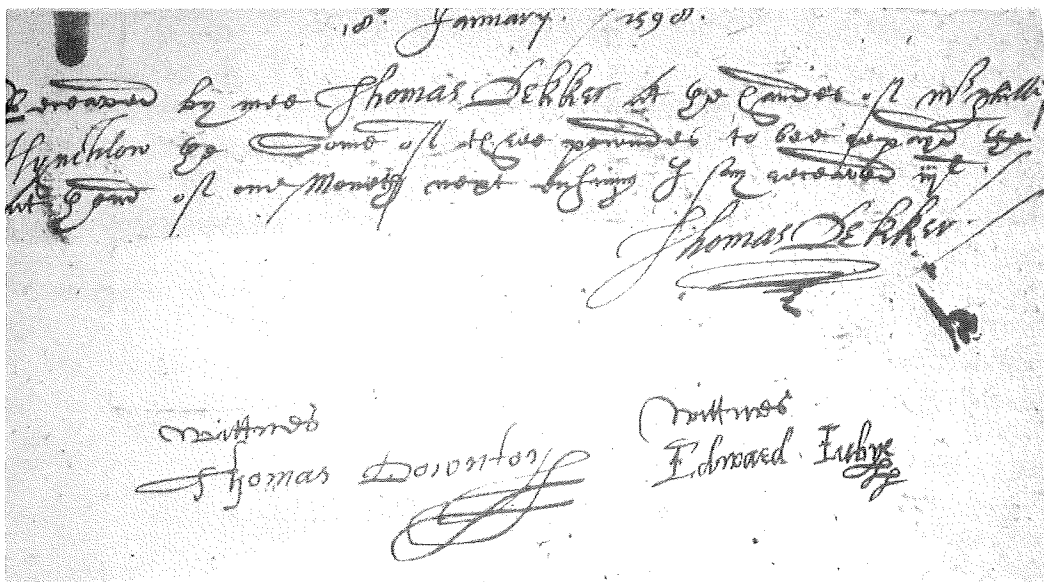 18° January. 1598.
Receaved by mee Thomas Dekker at the handes off mr Phillip
Hynchlow the Some off three powndes to bee repayd the
at thend off one Moneth next ensuing I say receaved iijl.
Thomas Dekker.
wittnes
Thomas Downton
wittnes
Edward Jubye